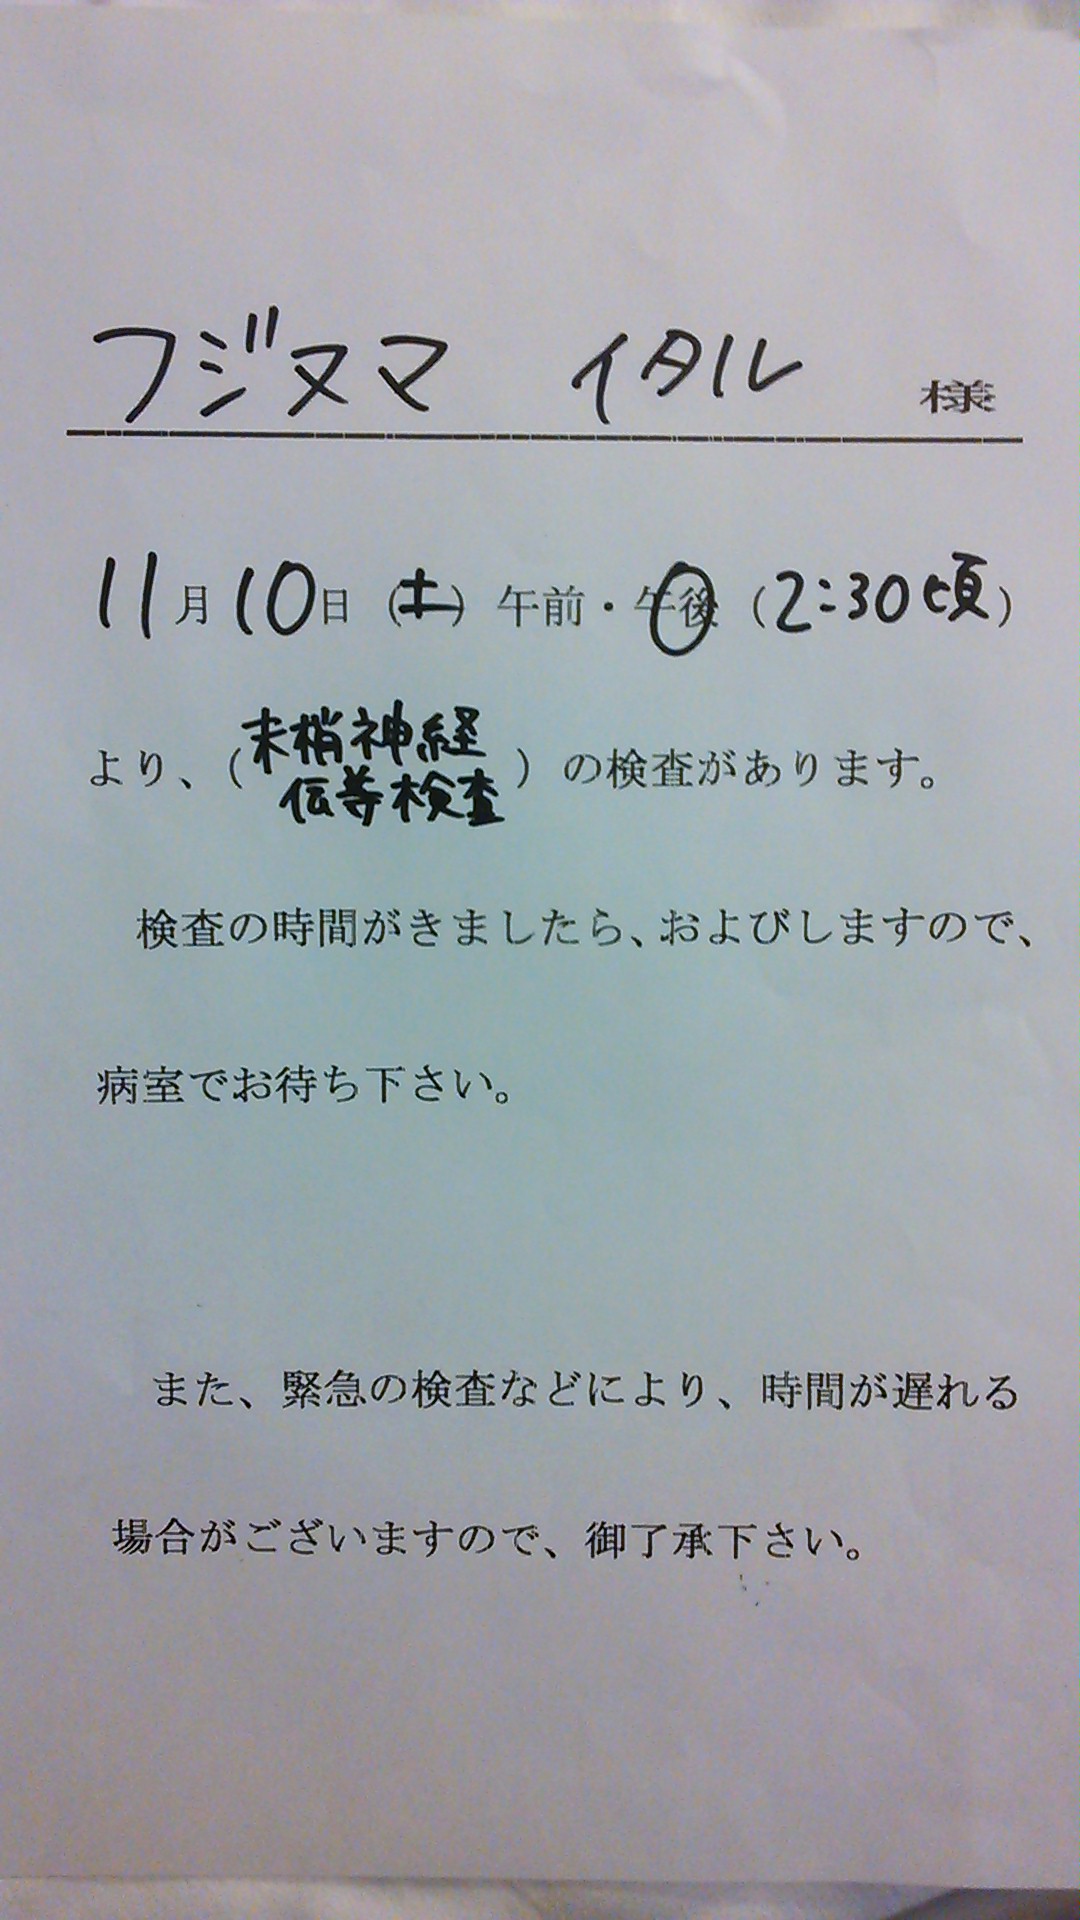 フジヌマ イタル 様
11月10日(土)午前・午後(2:30頃)
より、(末梢神経
伝導検査)の検査があります。
検査の時間がきましたら、およびしますので、
病室でお待ち下さい。
また、緊急の検査などにより、時間が遅れる
場合がございますので、御了承下さい。